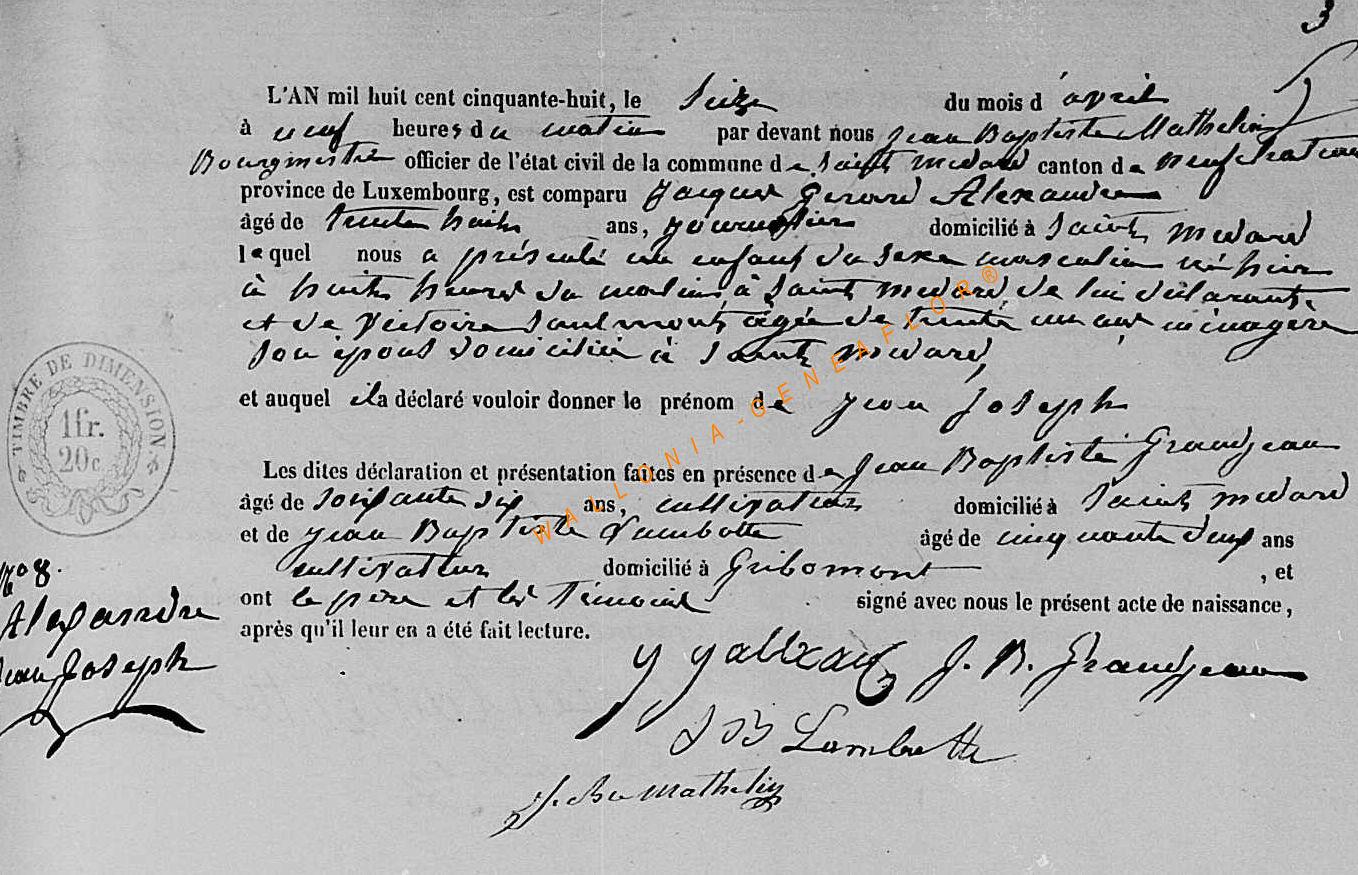 3
L'AN mil huit cent cinquante-huit, le Seize du mois d'avril
à neuf heures du matin par devant nous Jean Baptiste Mathelin
Bourgmestre officier de l'état civil de la commune de Saint medard canton de neufchateau
province de Luxembourg, est comparu Jacques Gerard Alexandre
âgé de trente huit ans, journalier domicilié à Saint medard
lequel nous a présenté un enfant du sexe masculin né hier
à huit heures du matin, à Saint medard, de lui déclarant,
et de Victoire Saulmont, agée de trente un ans ménagère
Son épouse domiciliée à Saint medard,
et auquel il a déclaré vouloir donner le prénom de Jean Joseph
Les dites déclaration et présentation faites en présence de Jean Baptiste Grandjean
âgé de Soixante Six ans, cultivateur domicilié à Saint medard
et de Jean Baptiste Lambotte âgé de cinquante deux ans
cultivateur domicilié à Gribomont, et
ont le père et les témoins signé avec nous le présent acte de naissance,
après qu'il leur en a été fait lecture.
J. B. Grandjean
J B Lambotte
J. Bte Mathelin
TIMBRE DE DIMENSION.
1 fr.
20 c.
No 8.
Alexandre
Jean Joseph
WALLONIA-GENEAFLOR®